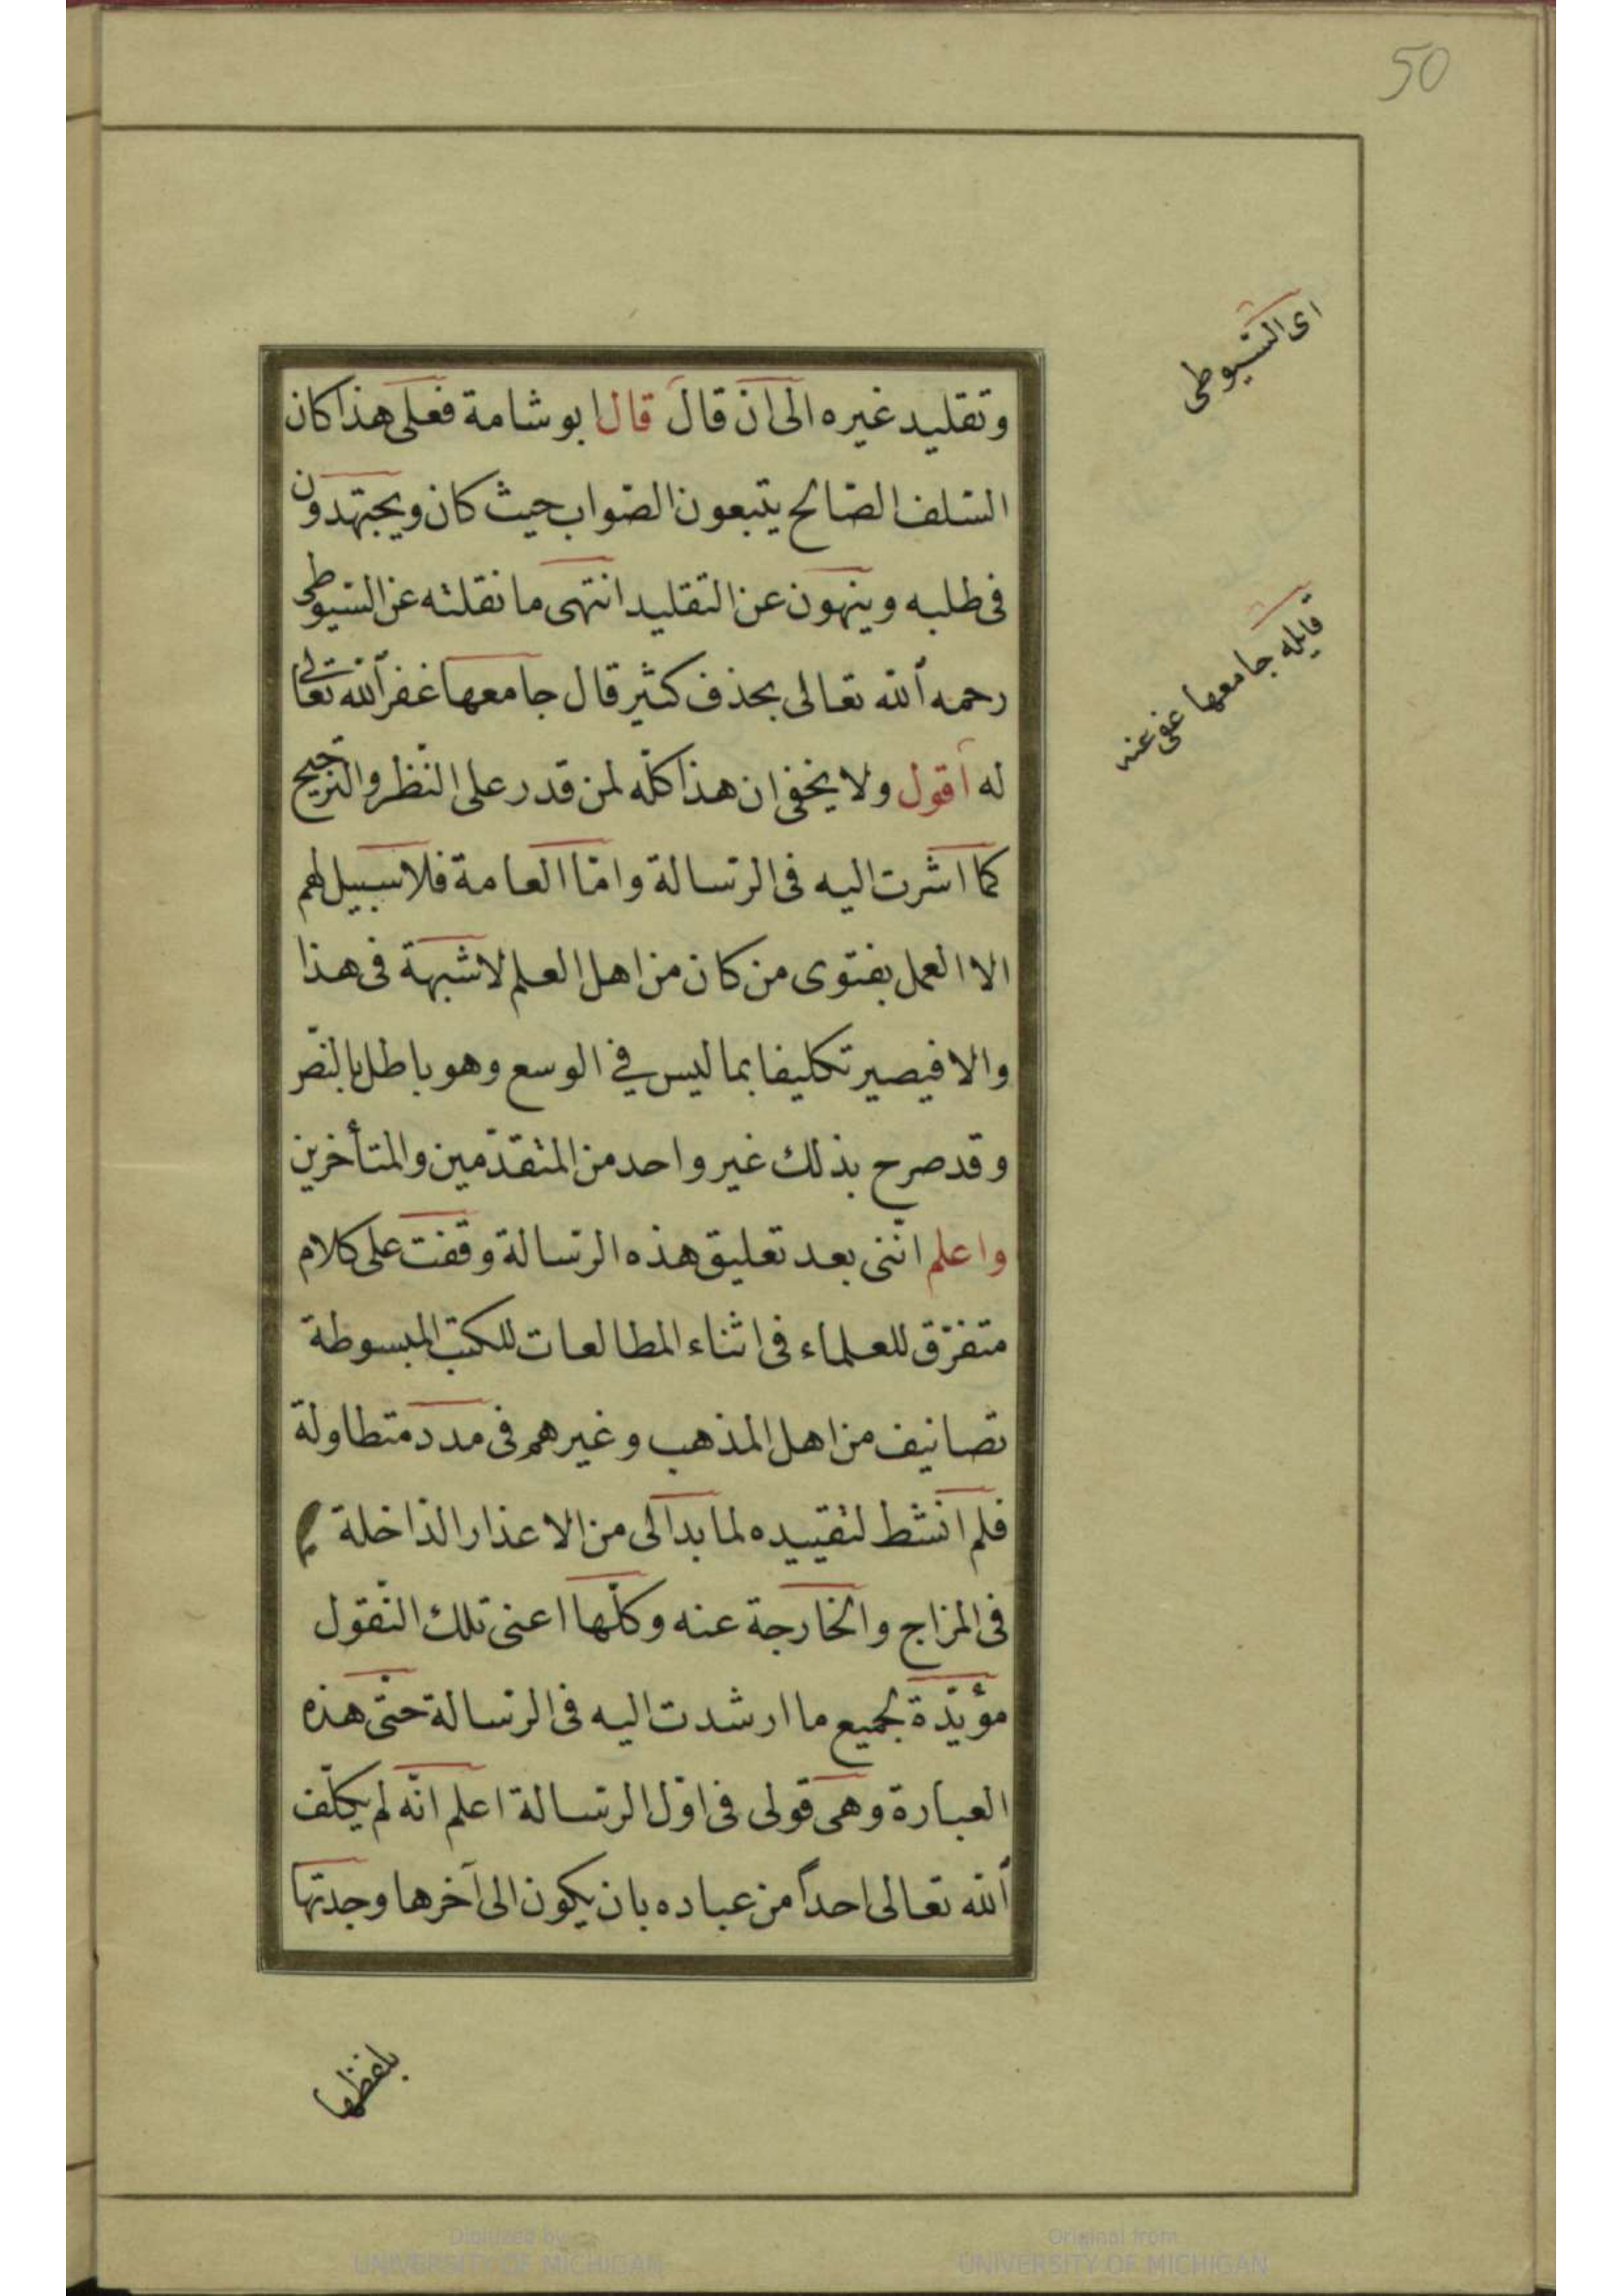 50
اى السّيوطى
وتقليد غيره الى ان قال قال ابو شامة فعلى هذا كان
السّلف الصّالح يتبعون الصّواب حيث كان ويجتهدون
فى طلبه وينهون عن التقليد انتهى ما نقلته عن السّيوطى
رحمه الله تعالى بحذف كثير قال جامعها غفر الله تعالى
قايله جامعها عفى عنه
له اقول ولا يخفى ان هذا كلّه لمن قدر على النّظر والترجيح
كما اشرت اليه فى الرّسالة وامّا العامة فلا سبيل لهم
الا العمل بفتوى من كان من اهل العلم لا شبهة فى هذا
والا فيصير تكليفا بما ليس في الوسع وهو باطل بالنّص
وقد صرح بذلك غير واحد من المتقدّمين والمتأخرين
واعلم انّنى بعد تعليق هذه الرّسالة وقفت على كلام
متفرّق للعلماء فى اثناء المطالعات للكتب المبسوطة
تصانيف من اهل المذهب وغيرهم فى مدد متطاولة
فلم انشط لتقييده لما بدا لى من الاعذار الدّاخلة
فى المزاج والخارجة عنه وكلّها اعنى تلك النّقول
مؤيّدة لجميع ما ارشدت اليه فى الرّسالة حتّى هذه
العبارة وهى قولى فى اوّل الرّسالة اعلم انّه لم يكلّف
الله تعالى احدًا من عباده بان يكون الى آخرها وجدتها
بلفظها
Digitized by
UNIVERSITY OF MICHIGAN
Original from
UNIVERSITY OF MICHIGAN